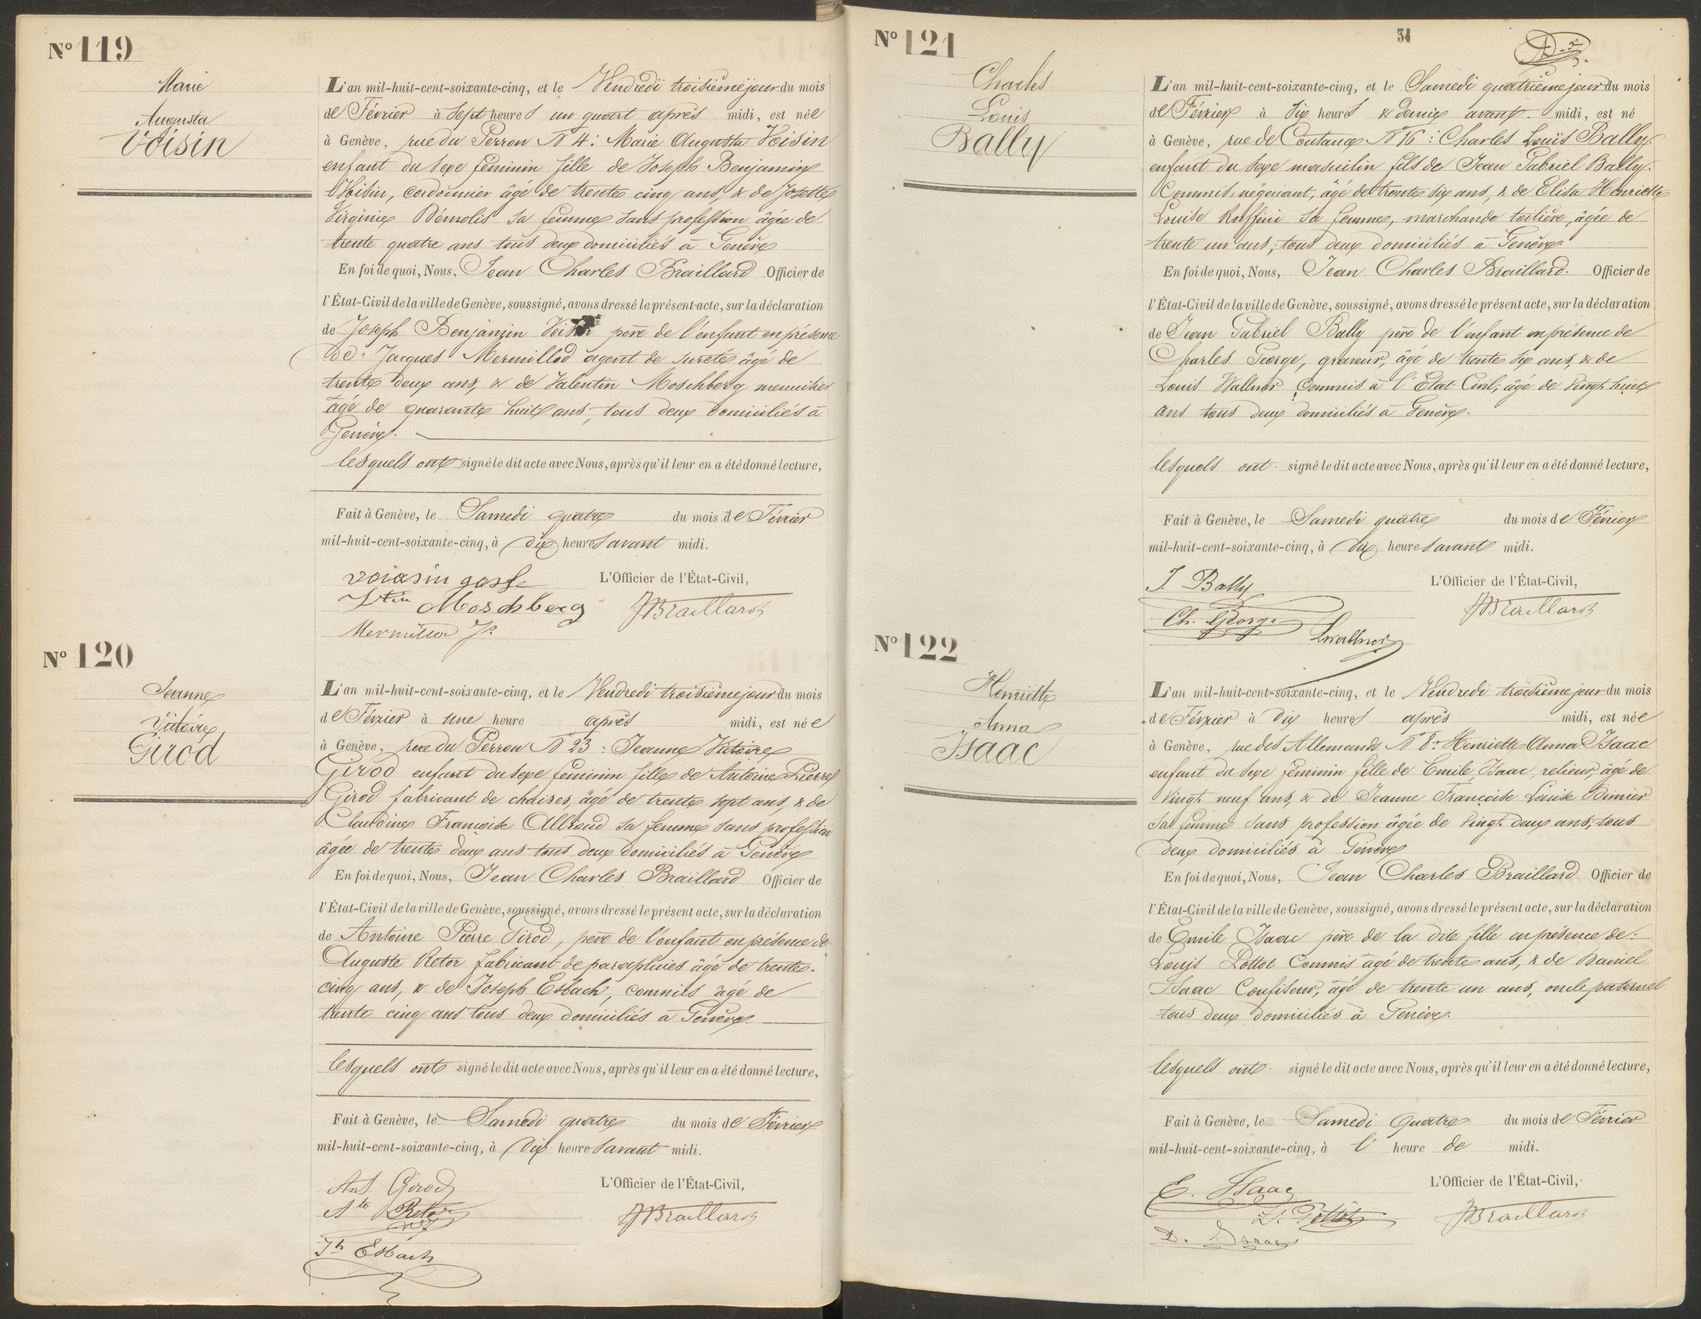 N° 119
Marie
Augusta
Voisin
L'an mil-huit-cent-soixante-cinq, et le Vendredi troisième jour du mois
de Février à sept heures un quart après midi, est née
à Genève, rue du Perron N° 4: Marie Augusta Voisin
enfant du sexe féminin fille de Joseph Benjamin
Voisin, cordonnier âgé de trente cinq ans, & de Josette
Virginie Démolis sa femme sans profession âgée de
trente quatre ans tous deux domiciliés à Genève
En foi de quoi, Nous, Jean Charles Braillard Officier de
l'État-Civil de la ville de Genève, soussigné, avons dressé le présent acte, sur la déclaration
de Joseph Benjamin Voisin père de l'enfant en présence
de: Jacques Mermillod agent de sureté âgé de
trente deux ans, & de Valentin Moschberg menuisier
âgé de quarante huit ans, tous deux domiciliés à
Genève.
lesquels ont signé le dit acte avec Nous, après qu'il leur en a été donné lecture,
Fait à Genève, le Samedi quatre du mois de Février
mil-huit-cent-soixante-cinq, à dix heures avant midi.
voiasin gosfe L'Officier de l'État-Civil,
Moschberg JBraillard
Mermillod Js
N° 120
Jeanne
Victoire
Girod
L'an mil-huit-cent-soixante-cinq, et le Vendredi troisième jour du mois
de Février à une heure après midi, est née
à Genève, rue du Perron N° 23: Jeanne Victoire
Girod enfant du sexe féminin fille de Antoine Pierre
Girod fabricant de chaises, âgé de trente sept ans, & de
Claudine Françoise Alliod sa femme sans profession
âgée de trente deux ans tous deux domiciliés à Genève
En foi de quoi, Nous, Jean Charles Braillard Officier de
l'État-Civil de la ville de Genève, soussigné, avons dressé le présent acte, sur la déclaration
de Antoine Pierre Girod, père de l'enfant en présence de
Auguste Retor fabricant de parapluies âgé de trente-
cinq ans, & de Joseph Esbach, commis âgé de
trente cinq ans tous deux domiciliés à Genève.
lesquels ont signé le dit acte avec Nous, après qu'il leur en a été donné lecture,
Fait à Genève, le Samedi quatre du mois de Février
mil-huit-cent-soixante-cinq, à dix heures avant midi.
Ant Girod L'Officier de l'État-Civil,
Ate Retor JBraillard
Jh Esbach
N° 121
34
Charles
Louis
Bally
L'an mil-huit-cent-soixante-cinq, et le Samedi quatrième jour du mois
de Février à six heures & demie avant midi, est né
à Genève, rue de Coutance N° 16: Charles Louis Bally.
enfant du sexe masculin fils de Jean Gabriel Bally.
Commis négociant, âgé de trente six ans, & de Elisa Henriette
Louise Ruffini sa femme, marchande toilière, âgée de
trente un ans, tous deux domiciliés à Genève
En foi de quoi, Nous, Jean Charles Braillard. Officier de
l'État-Civil de la ville de Genève, soussigné, avons dressé le présent acte, sur la déclaration
de Jean Gabriel Bally père de l'enfant en présence de
Charles George, graveur, âgé de trente six ans, & de
Louis Wallner, commis à l'Etat Civil, âgé de vingt huit
ans tous deux domiciliés à Genève.
lesquels ont signé le dit acte avec Nous, après qu'il leur en a été donné lecture,
Fait à Genève, le Samedi quatre du mois de Février
mil-huit-cent-soixante-cinq, à dix heures avant midi.
J Bally L'Officier de l'État-Civil,
Ch. George JBraillard
Lwallner
N° 122
Henriette
Anna
Isaac
L'an mil-huit-cent-soixante-cinq, et le Vendredi troisième jour du mois
de Février à dix heures après midi, est née
à Genève, rue des Allemands N° 8: Henriette Anna Isaac
enfant du sexe féminin fille de Emile Isaac, relieur, âgé de
vingt neuf ans, & de Jeanne Françoise Louise Dimier
sa femme sans profession âgée de vingt deux ans, tous
deux domiciliés à Genève
En foi de quoi, Nous, Jean Charles Braillard Officier de
l'État-Civil de la ville de Genève, soussigné, avons dressé le présent acte, sur la déclaration
de Emile Isaac père de la dite fille en présence de:
Louis Pottot Commis âgé de trente ans, & de Daniel
Isaac Confiseur, âgé de trente un ans, oncle paternel
tous deux domiciliés à Genève.
lesquels ont signé le dit acte avec Nous, après qu'il leur en a été donné lecture,
Fait à Genève, le Samedi quatre du mois de Février
mil-huit-cent-soixante-cinq, à l' heure de midi.
E. Isaac L'Officier de l'État-Civil,
L. Pottot JBraillard
D. Isaac